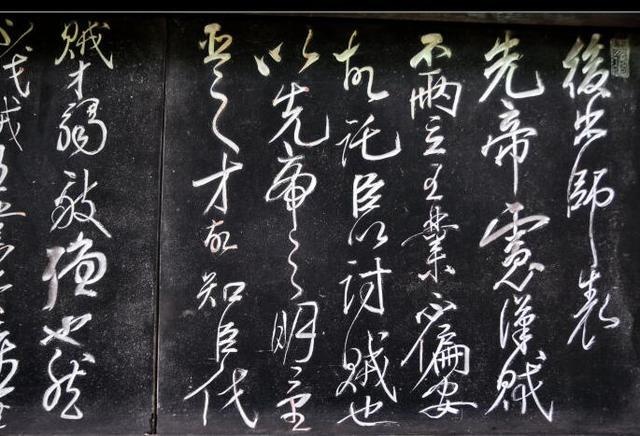 後出師表
先帝慮漢賊
不兩立王業不偏安
故託臣以討賊也
以先帝之明量
臣之才故知臣伐
賊才弱敵強也然
不伐賊王業